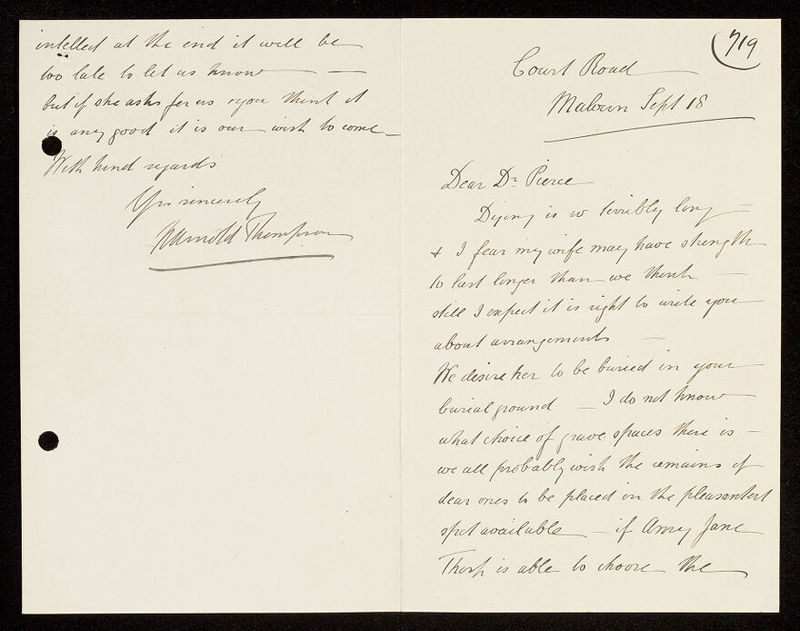 719
Court Road
Malvern Sept 18
Dear Dr. Pierce
Dying is so terribly long —
& I fear my wife may have strength
to last longer than we think —
still I expect it is right to write you
about arrangements —
We desire her to be buried in your
burial ground — I do not know
what choice of grave spaces there is —
we all probably wish the remains of
dear ones to be placed in the pleasantest
spot available — if Amy Jane
Thorp is able to choose the
intellect at the end it will be
too late to let us know —
but if she asks for us & you think it
is any good it is our wish to come —
With kind regards
Yrs sincerely
Thompson